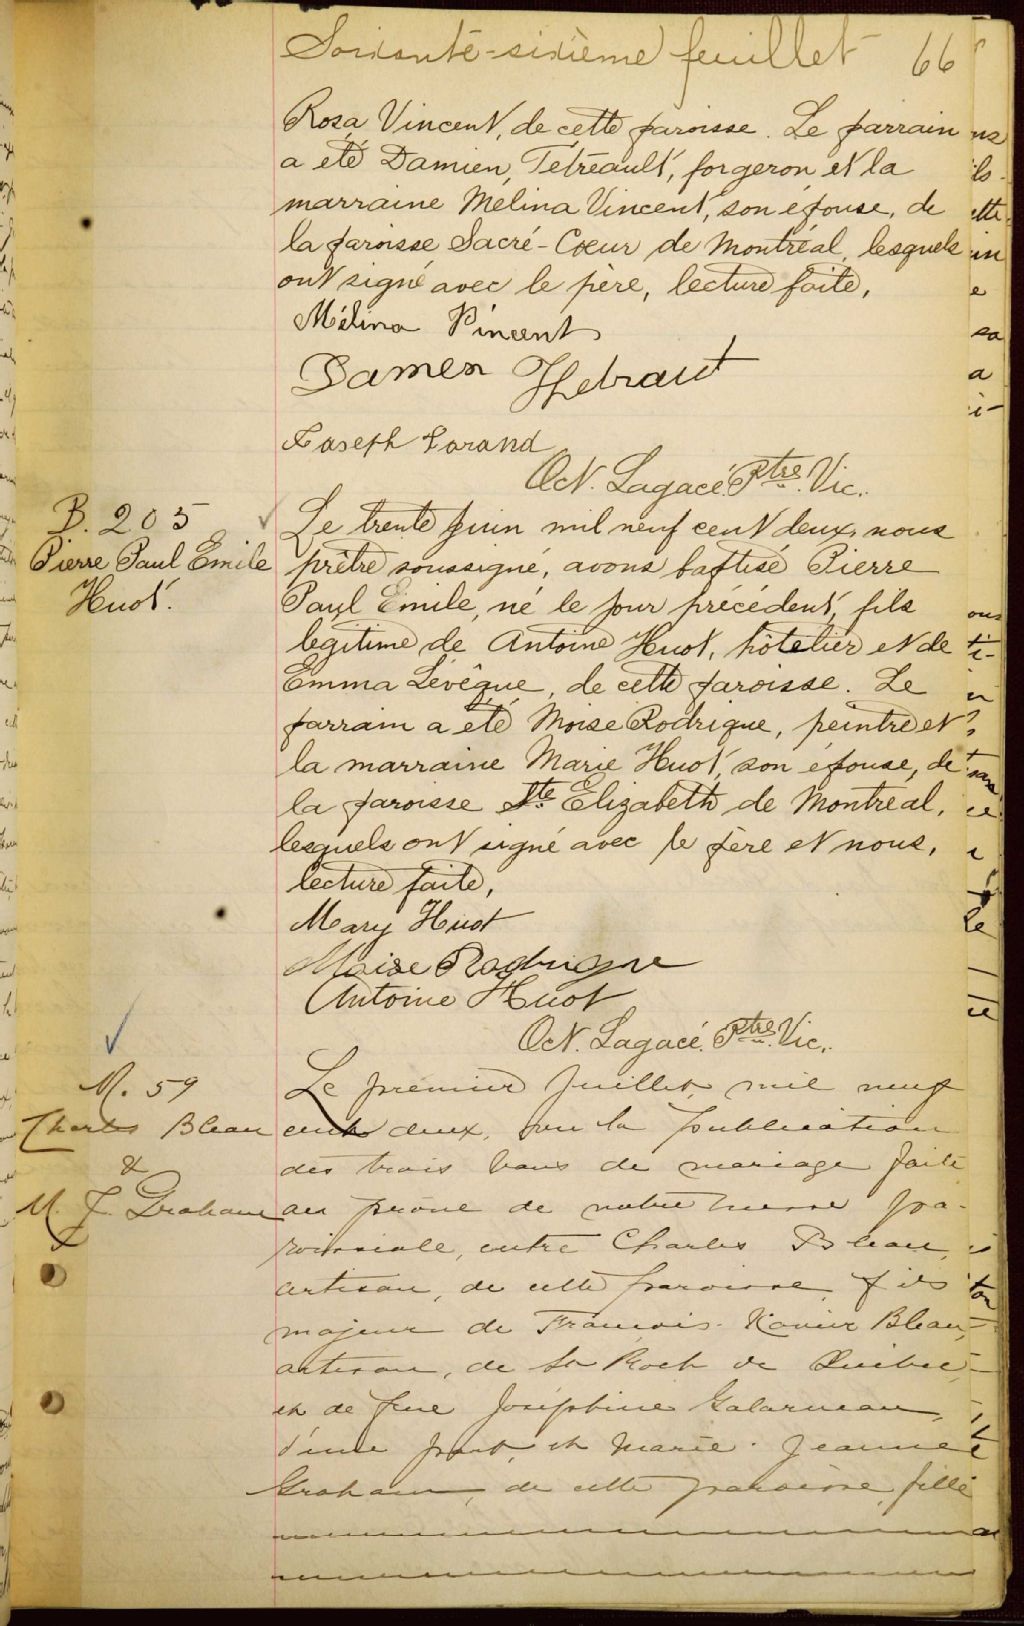 Soixante-sixième feuillet 66
Rosa Vincent, de cette paroisse. Le parrain
a été Damien, Tétréault, forgeron et la
marraine Mélina Vincent, son épouse, de
la paroisse Sacré-Cœur de Montréal, lesquels
ont signé avec le père, lecture faite,
Mélina Vincent
Damen Hetraut
Joseph Lorand
Oct. Lagacé. Ptre. Vic.
B. 205
Pierre Paul Emile
Huot.
Le trente juin mil neuf cent deux, nous
prêtre soussigné, avons baptisé Pierre
Paul Emile, né le jour précédent, fils
legitime de Antoine Huot, hôtelier et de
Emma Lévêque, de cette paroisse. Le
parrain a été Moise Rodrigue, peintre et
la marraine Marie Huot, son épouse, de
la paroisse Ste Elizabeth de Montréal,
lesquels ont signé avec le père et nous,
lecture faite,
Mary Huot
Moise Rodrigue
Antoine Huot
Oct. Lagacé. Ptre. Vic.
M. 59
Charles Bleau
&
M. J. Graham
Le premier Juillet, mil neuf
cent deux, vu la publication
des trois bans de mariage faite
au prône de notre messe pa-
roissiale, entre Charles Bleau,
artisan, de cette paroisse, fils
majeur de François-Xavier Bleau,
artisan, de St Roch de Québec,
et de feue Joséphine Galarneau,
d'une part, et Marie-Jeanne
Graham, de cette paroisse, fille